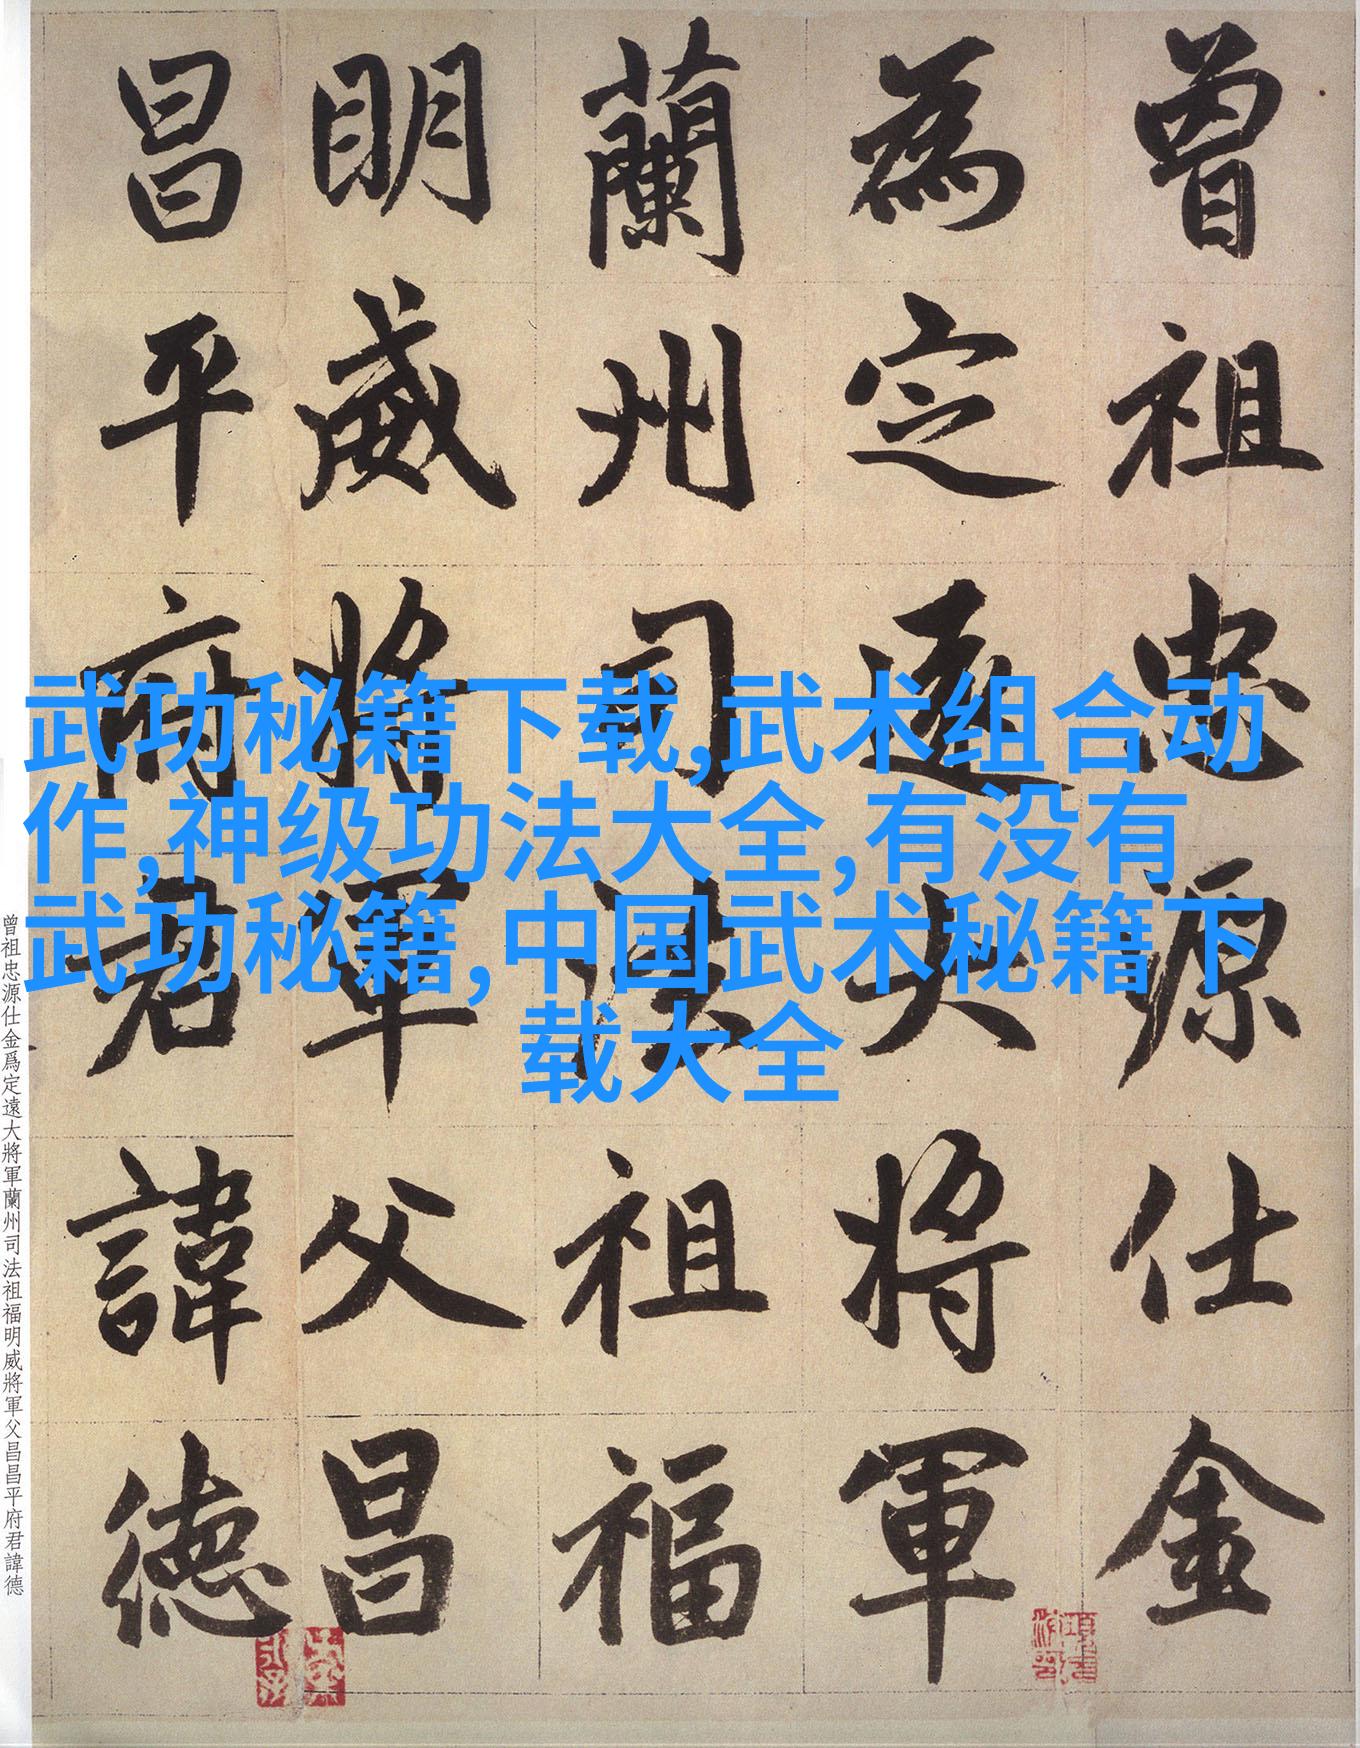 曾祖忠源仕金
為定遠大將軍
蘭州司法祖福
明威將軍父昌
昌平府君諱德
武功秘籍下载,武术组合动
作,神级功法大全,有没有
武功秘籍,中国武术秘籍下
载大全
曾祖忠源仕金爲定遠大將軍蘭州司法祖福明威將軍父昌昌平府君諱德